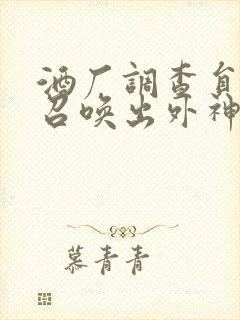 酒厂調查員
召唤出外神
慕青青